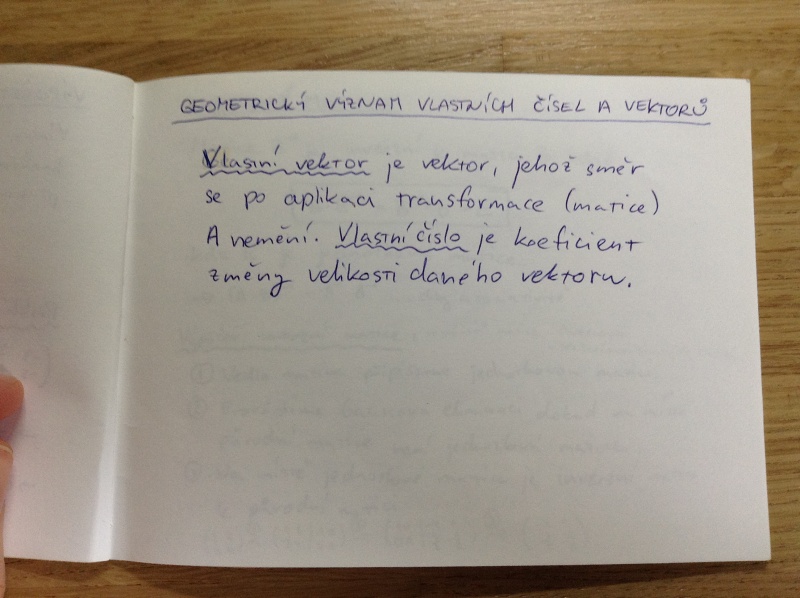 GEOMETRICKÝ VÝZNAM VLASTNÍCH ČÍSEL A VEKTORŮ
Vlastní vektor je vektor, jehož směr
se po aplikaci transformace (matice)
A nemění. Vlastní číslo je koeficient
změny velikosti daného vektoru.